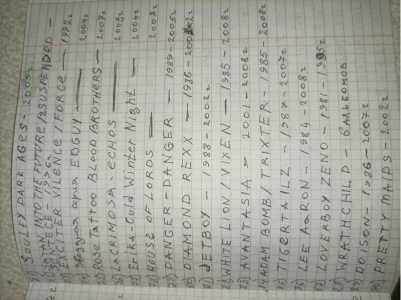 SOULFLY DARK AGES - 2005г
INTO THE FUTURE / SUSPENDED -
EXCITER VILENCE / FORCE - 
EDGUY - 2004г
ROSE TATTOO BLOOD BROTHERS - 2007г
LACRIMOSA: ECHOS - 2003г
Erika-Cold Winter Night -
HOUSE OF LORDS - 2008г
DANGER-DANGER - 1989-2005г
DIAMOND REXX - 1986-
JETBOY - 1988-2002г
WHITE LION / VIXEN - 1985-2008г
AVANTASIA - 2001-2008г
ADAM BOMB / TRIXTER - 1985-2008г
TIGERTAILZ - 1987-2007г
LEE AARON - 1981-2008г
LOVERBOY ZENO - 1981-1995г
WRATHCHILD - 6 альбомов
POISON - 1986-2007г
PRETTY MAIDS - 2002г